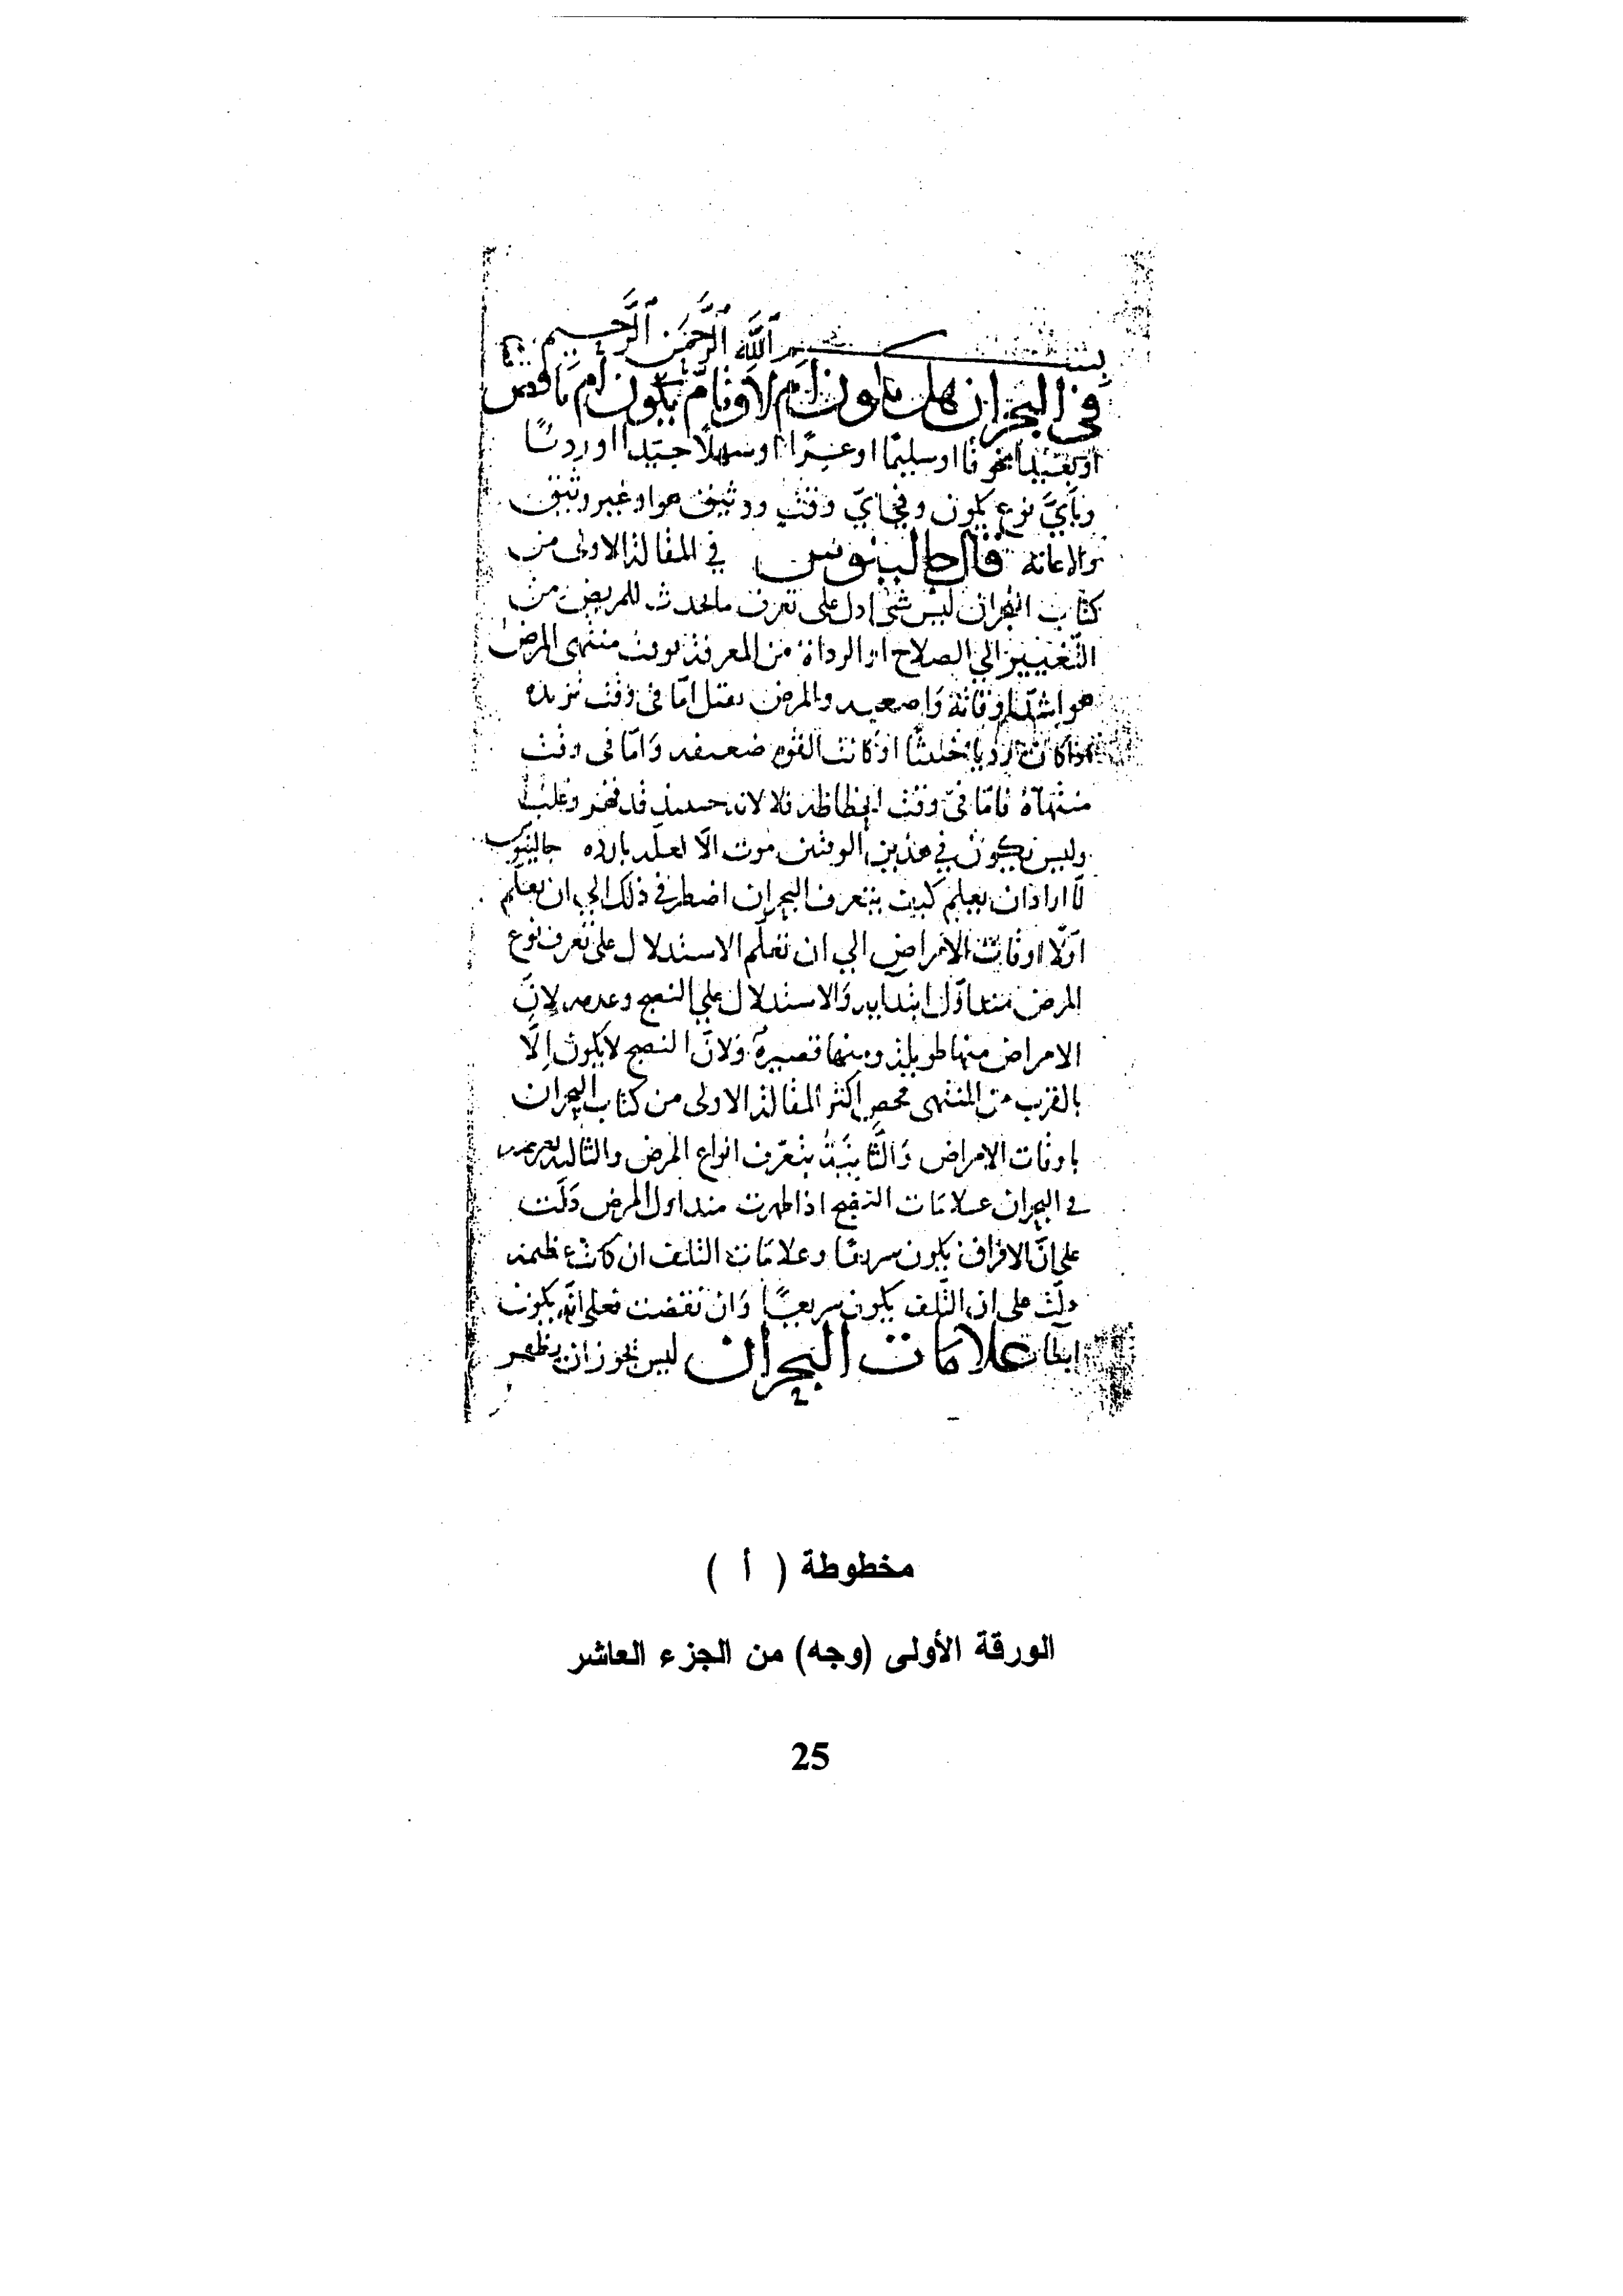 بسم الله الرحمن الرحيم
في البحران هل يكون ام لا وتام يكون ام ناقص
او بعيدا مخوفا او سليما او عسرا او سهلا جيدا او رديا
وبأيّ نوع يكون وفي ايّ وقت وثيق هو او غير وثيق
قال جالينوس في المقالة الاولى من
كتاب البحران ليس شى ادل على تعرف ما يحدث للمريض من
التغيير الي الصلاح او الرداة من المعرفة بوقت منتهى المرض
هو اشد اوقاته واصعبه والمرض يقتل امّا فى وقت تزيده
اذا كان رديا خبيثا او كانت القوة ضعيفه وَامّا فى وقت
منتهاه فامّا فى وقت انحطاطه فلا لانه حينيذ قد قهر وغلب
وليس يكون في هذين الوقتين موت الّا لعلة بارده جالينوس
لمّا اراد ان يعلم كيف يتعرف البحران اضطر في ذلك الي ان يعلم
اوّلا اوقات الامراض الي ان تعلّم الاستدلال على تعرف نوع
المرض منذ اوّل ابتدايه وَالاستدلال علي النضج وعدمه لانّ
الامراض منها طويلة ومنها قصيرة وَلانّ النضج لا يكون اِلّا
بالقرب من المنتهى اكثر المقالة الاولى من كتاب البحران
باوقات الامراض وَالثّانيَة بتعرّف انواع المرض والثالثة
في البحران علامات النضج اذا ظهرت منذ اول المرض دَلّت
على انّ الافراق يكون سريعًا وعلامات التلف ان كانت عظيمة
دلّت على ان التّلف يكون سريعًا وَان نقصت فعلى انّه يكون
علامات البحران ليس يجوز ان يظهر
مخطوطة ( أ )
الورقة الأولى (وجه) من الجزء العاشر
25